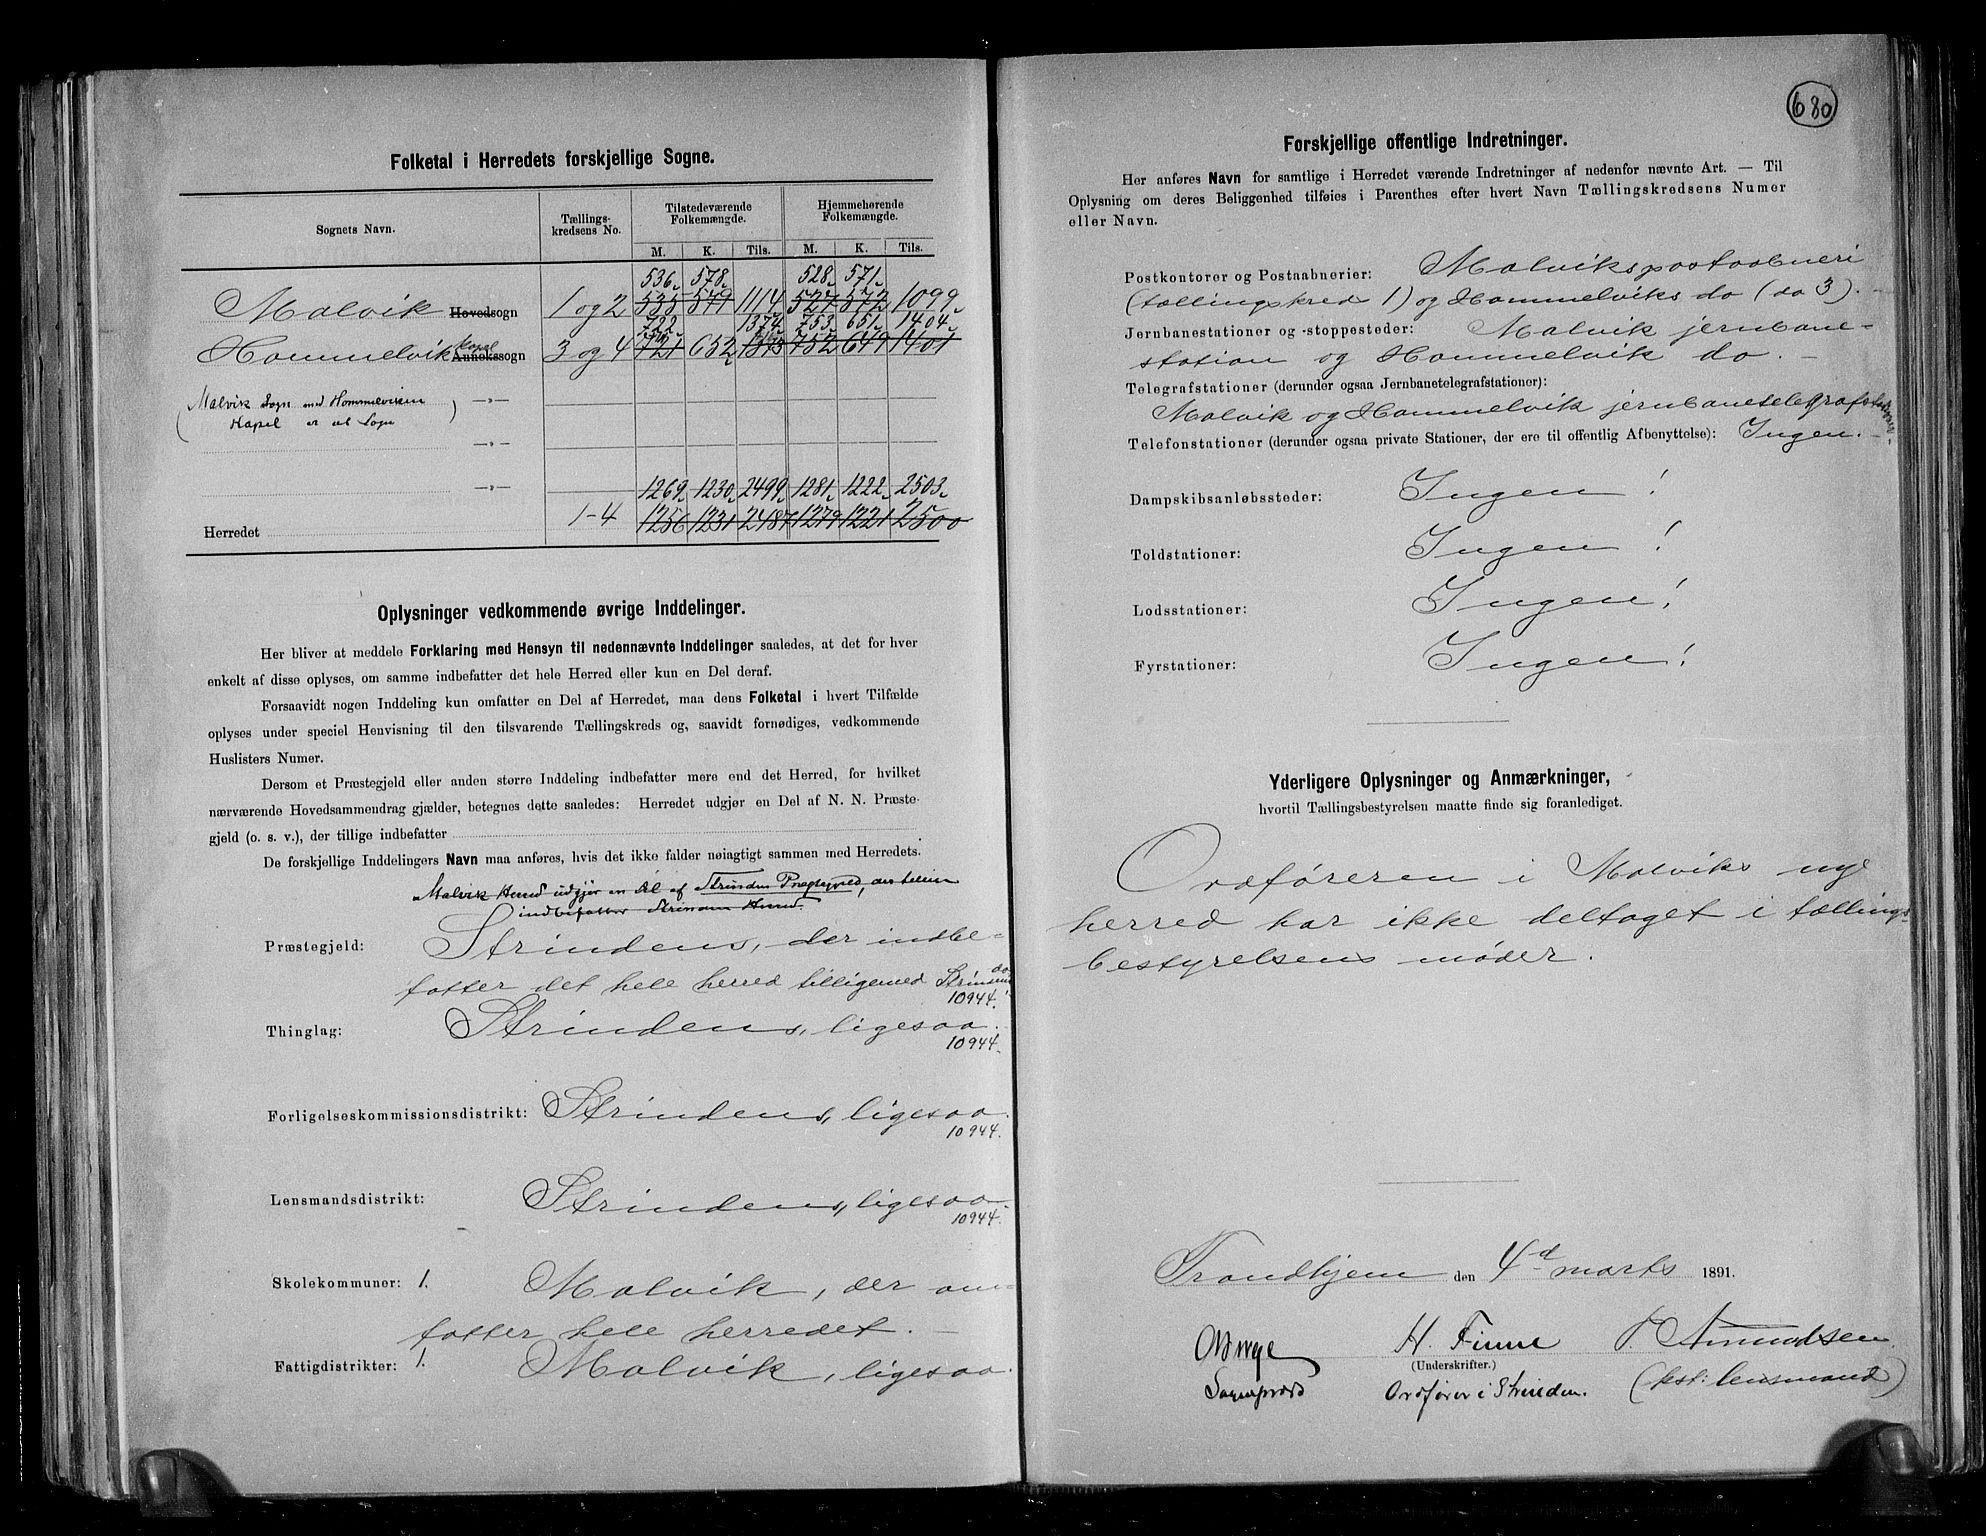 Folketal i Herredets forskjellige Sogne.
Sognets Navn.
Tællings-
kredsens No.
Tilstedeværende
Folkemængde.
Hjemmehørende
Folkemængde.
M. K. Tils. M. K. Tils.
536 578 528 571
Malvik Hovedsogn 1 og 2 535 579 1114 527 572 1099
722 1374 753 651 1404
Kapel
Hommelvik Annekssogn 3 og 4 721 652 1373 752 649 1401
(Malvik Sogn med Hommelviken
Kapel er et Sogn)
1269 1230 2499 1281 1222 2503
Herredet 1-4 1256 1231 2487 1279 1221 2500
Oplysninger vedkommende øvrige Inddelinger.
Her bliver at meddele Forklaring med Hensyn til nedennævnte Inddelinger saaledes, at det for hver
enkelt af disse oplyses, om samme indbefatter det hele Herred eller kun en Del deraf.
Forsaavidt nogen Inddeling kun omfatter en Del af Herredet, maa dens Folketal i hvert Tilfælde
oplyses under speciel Henvisning til den tilsvarende Tællingskreds og, saavidt fornødiges, vedkommende
Huslisters Numer.
Dersom et Præstegjeld eller anden større Inddeling indbefatter mere end det Herred, for hvilket
nærværende Hovedsammendrag gjælder, betegnes dette saaledes: Herredet udgjør en Del af N. N. Præste-
gjeld (o. s. v.), der tillige indbefatter
De forskjellige Inddelingers Navn maa anføres, hvis det ikke falder nøiagtigt sammen med Herredets.
Malvik Herred udgjør en Del af Strinden Præstegjeld, der tillige
indbefatter Strinden Herred.
Præstegjeld: Strindens, der indbe-
fatter det hele herred tilligemed Strinden do
10944.
Thinglag: Strindens, ligesaa.
10944.
Forligelseskommissionsdistrikt: Strindens, ligesaa.
10944.
Lensmandsdistrikt: Strindens, ligesaa
10944.
Skolekommuner: 1. Malvik, der om-
fatter hele herredet.
Fattigdistrikter: 1. Malvik, ligesaa.
680
Forskjellige offentlige Indretninger.
Her anføres Navn for samtlige i Herredet værende Indretninger af nedenfor nævnte Art. — Til
Oplysning om deres Beliggenhed tilføies i Parenthes efter hvert Navn Tællingskredsens Numer
eller Navn.
Postkontorer og Postaabnerier: Malviks postaabneri
(tællingskred 1) og Hommelviks do (do 3).
Jernbanestationer og -stoppesteder: Malvik jernbane-
station og Hommelvik do. —
Telegrafstationer (derunder ogsaa Jernbanetelegrafstationer):
Malvik og Hommelvik jernbanetelegrafstationer.
Telefonstationer (derunder ogsaa private Stationer, der ere til offentlig Afbenyttelse): Ingen. —
Dampskibsanløbssteder: Ingen!
Toldstationer: Ingen!
Lodsstationer: Ingen!
Fyrstationer: Ingen!
Yderligere Oplysninger og Anmærkninger,
hvortil Tællingsbestyrelsen maatte finde sig foranlediget.
Ordføreren i Malviks nye
herred har ikke deltaget i tællings-
bestyrelsens møder.
Trondhjem den 4d marts 1891.
H. Finne P. Amundsen
(Underskrifter.)
Sogneprest Ordfører i Strinden. (kst. lensmand)